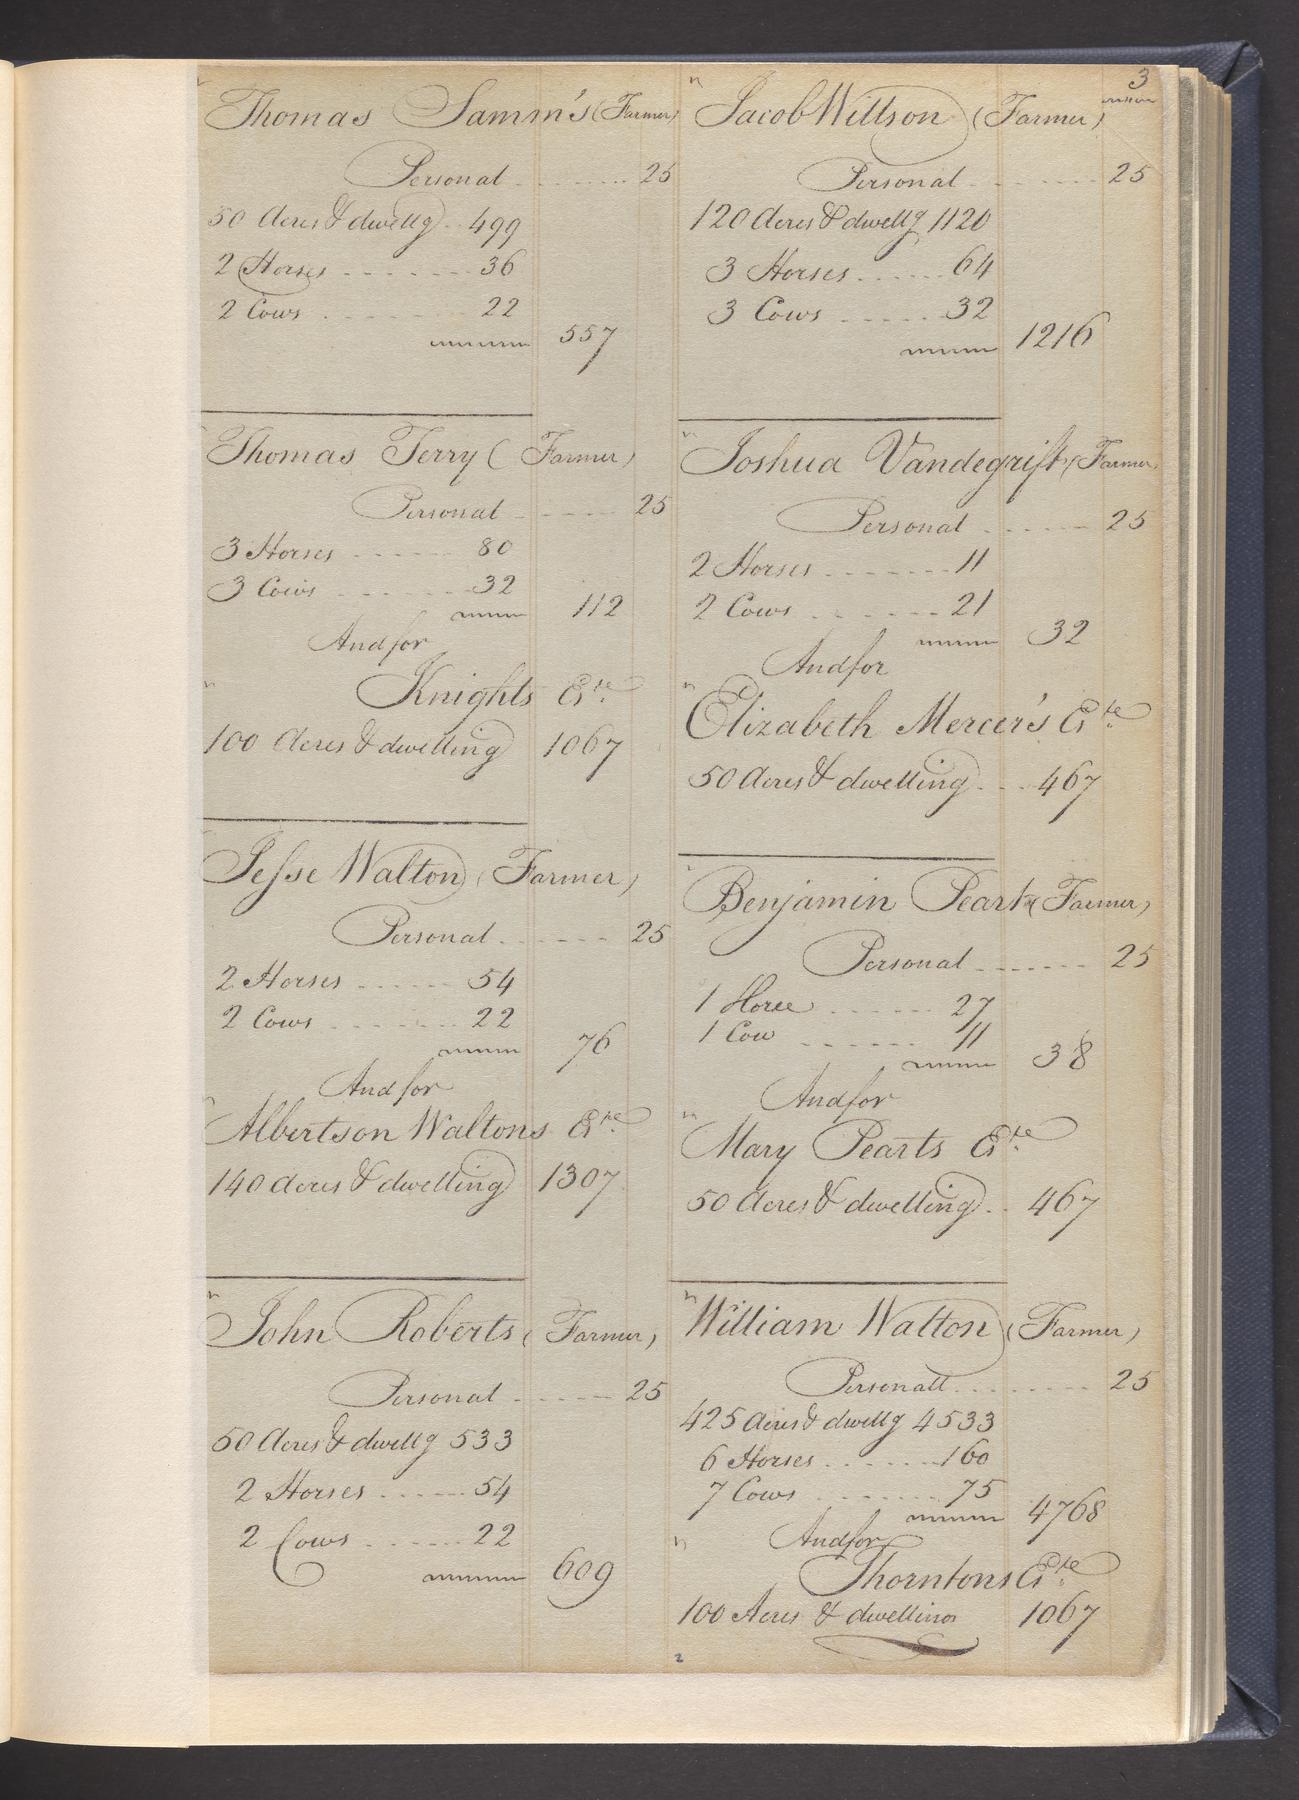 3
Thomas Samm's (Farmer)
Personal 25
50 Acres & dwellg 499
2 Horses 36
2 Cows 22
557
Thomas Terry (Farmer)
Personal 25
3 Horses 80
3 Cows 32
112
And for
Knights Este
100 Acres & dwelling 1067
Jesse Walton (Farmer)
Personal 25
2 Horses 54
2 Cows 22
76
And for
Albertson Waltons Este
140 acres & dwelling 1307
John Roberts (Farmer)
Personal 25
50 Acres & dwellg 533
2 Horses 54
2 Cows 22
609
Jacob Willson (Farmer)
Personal 25
120 Acres & dwellg 1120
3 Horses 64
3 Cows 32
1216
Joshua Vandegrift (Farmer
Personal 25
2 Horses 11
2 Cows 21
32
And for
Elizabeth Mercer's Este
50 Acres & dwelling 467
Benjamin Peart (Farmer)
Personal 25
1 Horse 27
1 Cow 11
38
And for
Mary Pearts Este
50 Acres & dwelling 467
William Walton (Farmer)
Personall 25
425 Acres & dwellg 4533
6 Horses 160
7 Cows 75
4768
And for
Thorntons Este
100 Acres & dwelling 1067
2